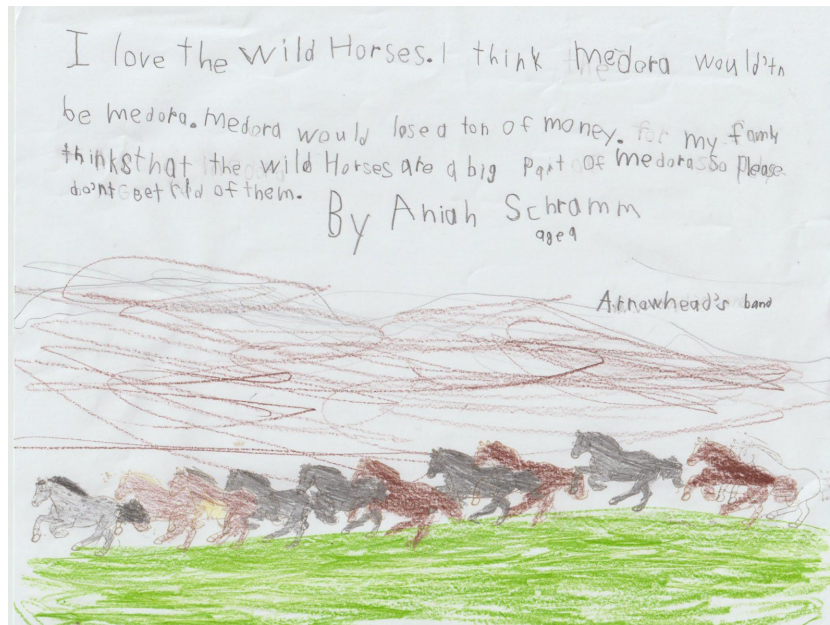 I love the wild Horses. I think medora would'tn
be medora. medora would lose a ton of money. for my famly
thinks that the wild Horses are a big part of medora so please
do'nt get rid of them.
By Aniah Schramm
age 9
Arrowhead's band